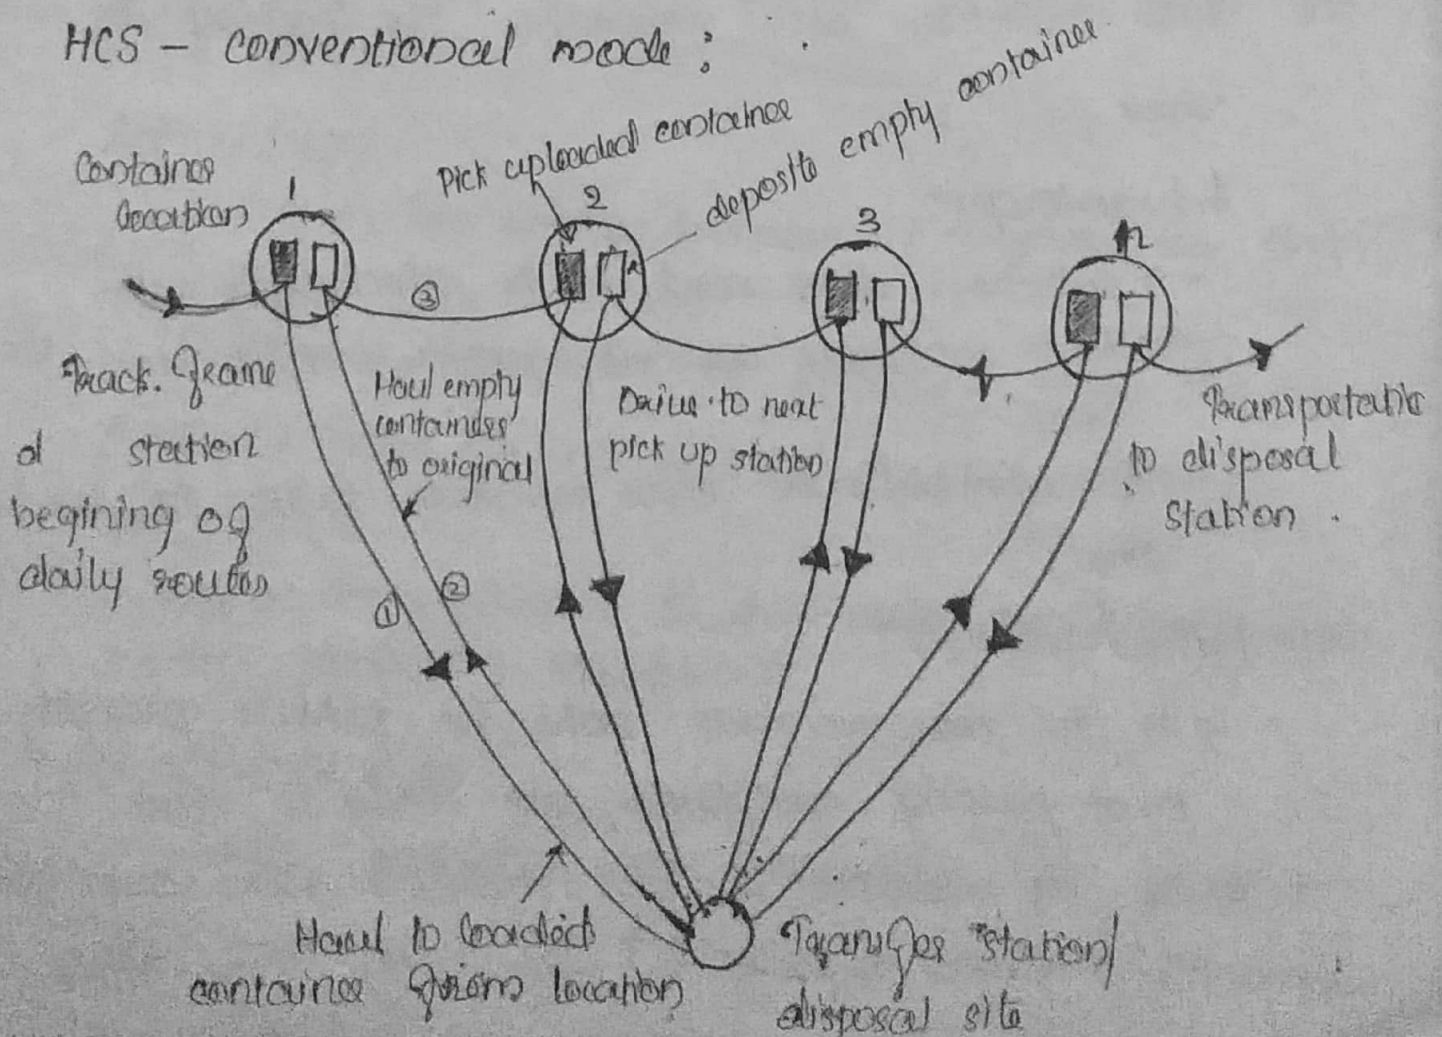 HCS – conventional mode :
Pick uploaded container
deposite empty container
Container
location
1
2
3
n
③
Track. frame
d station
begining of
daily routes
Haul empty
containers
to original
Drive to next
pick up station
Transportatio
to disposal
station .
①
②
Haul to loaded
container from location
Transfer station/
disposal site